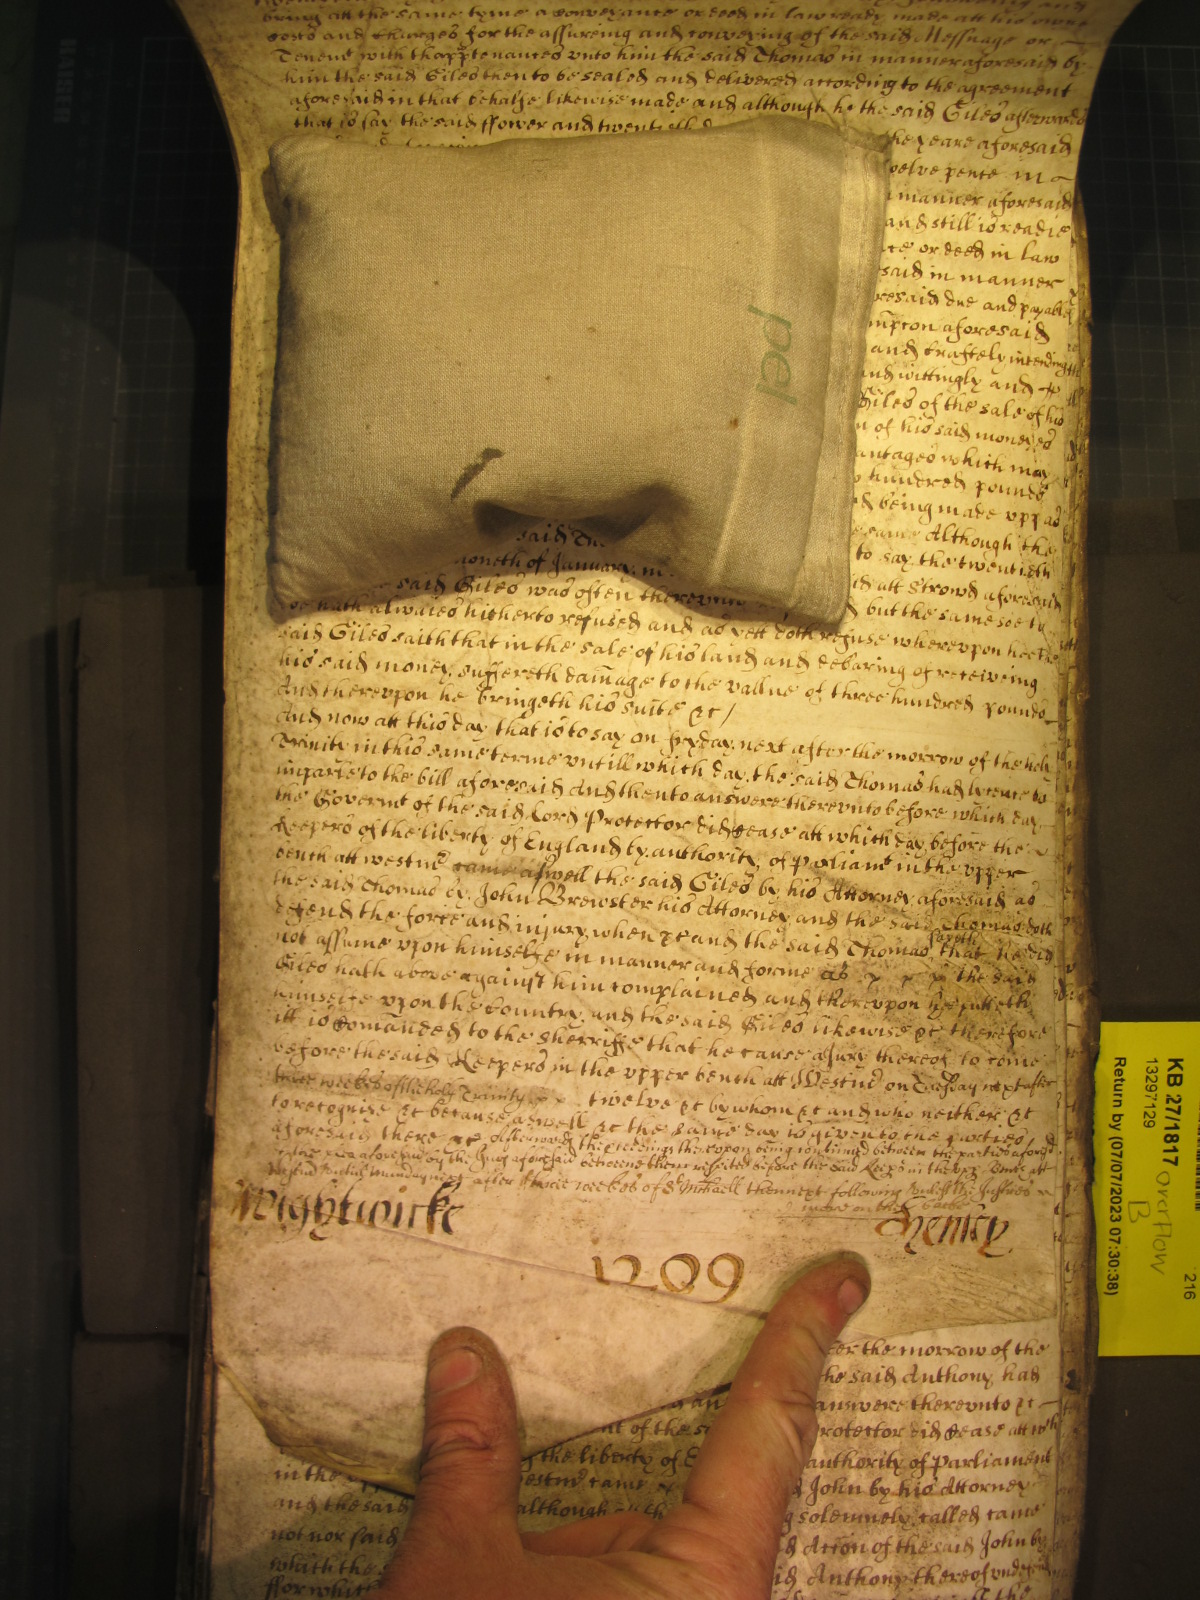 bring att the same tyme a conveyance or deed in law ready made att his owne
costs and charges for the assureing and conveying of the said Messuage or
Tenemt with thapptenances vnto him the said Thomas in manner aforesaid by
him the said Giles then to be sealed and delivered according to the agreement
aforesaid in that behalfe likewise made and although he the said Giles afterwards
that is to say the said ffower and twentieth
the yeare aforesaid
twelve pence in
manner aforesaid
and still is readie
or deed in law
said in manner
aforesaid due and payable
aforesaid
and craftely intending
and wittingly and
Giles of the sale of his
of his said moneyes
advantages which may
hundred pounds
being made vpp as
same Although the
to say the twentieth
att Strowd aforesaid
said
moneth of January in
said Giles was often therevnto
but the same soe to
hath alwaies hitherto refused and as yett doth refuse wherevpon hee the
said Giles saith that in the sale of his land and debaring of receiveing
his said money suffereth damage to the vallue of three hundred pounds
And therevpon he bringeth his suite &c /
And now att this day that is to say on ffryday next after the morrow of the holy
Trinity in this same terme vntill which day the said Thomas had lycence to
imparle to the bill aforesaid And then to answere therevnto before which day
the Governmt of the said Lord Protector did cease att which day before the
Keepers of the liberty of England by authority of parliamt in the vpper
bench att westmr came aswell the said Giles by his Attorney aforesaid as
the said Thomas by John Brewster his Attorney and the said Thomas doth
defend the force and injury when &c and the said Thomas sayth that he did
not assume vpon himselfe in manner and forme as the said
Giles hath above against him complained and therevpon he putteth
himselfe vpon the Country and the said Giles likewise &c therefore
itt is Comanded to the Sherriffe that he cause a Jury thereof to come
before the said Keepers in the vpper bench att Westmr on Tuesday next after
three weekes of the holy Trinity twelve &c by whom &c and who neither &c
to recognise &c because aswell &c the same day is given to the parties
aforesaid there &c Afterwards the proceedings therevpon being continued betweene the parties aforesd
of the plea aforesaid by the Jury aforesaid betweene them respited before the said Keeps in the vpp bench att
Westmr vntill Munday next after three weekes of St Michaell then next following vnlesse the Justices
Nightwicke
Henley
1209
after the morrow of the
the said Anthony had
answere therevnto &c
Protector did cease att wch
of the
the liberty of
authority of parliament
in the
westmr came
John by his Attorney
and the said
although
solemnely called came
not nor said
Action of the said John by
which the
Anthony thereof vndefended
ffor which
the
pel
KB 27/1817
13297129
Return by (07/07/2023 07:30:38)
216
overflow
B